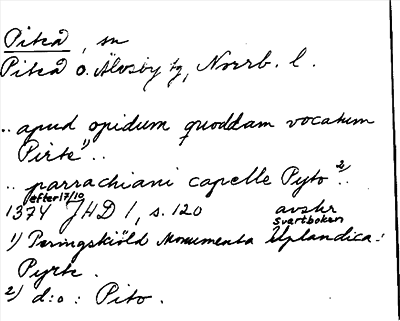 Piteå, sn
Piteå o. Älvsby tg, Norrb. l.
.. apud opidum quoddam vocatum
Pirte¹⁾ ..
.. parrachiani capelle Pyto²⁾ ..
efter 17/10
1374 JHD 1, s. 120 avskr
Svartboken
1) Peringskiöld Monumenta Uplandica:
Pyrte.
2) d:o : Pito.